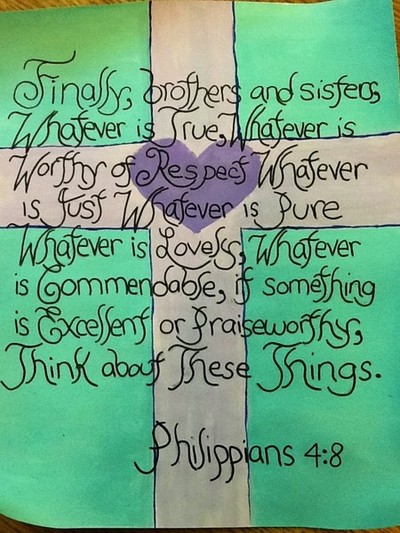 Finally, brothers and sisters,
Whatever is True, Whatever is
Worthy of Respect Whatever
is Just Whatever is Pure
Whatever is Lovely, Whatever
is Commendable, if something
is Excellent or Praiseworthy,
Think about These Things.
Philippians 4:8